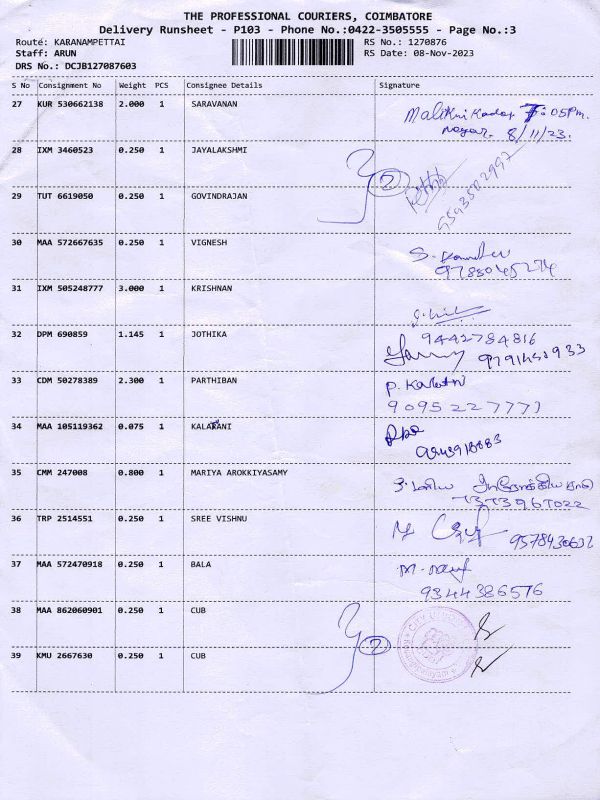 THE PROFESSIONAL COURIERS, COIMBATORE
Delivery Runsheet - P103 - Phone No.:0422-3505555 - Page No.:3
Route: KARANAMPETTAI
RS No.: 1270876
Staff: ARUN
RS Date: 08-Nov-2023
DRS No.: DCJB127087603
S No Consignment No Weight PCS Consignee Details Signature
27 KUR 530662138 2.000 1 SARAVANAN
7:05pm.
8/11/23.
28 IXM 3460523 0.250 1 JAYALAKSHMI
2
29 TUT 6619050 0.250 1 GOVINDRAJAN
30 MAA 572667635 0.250 1 VIGNESH
31 IXM 505248777 3.000 1 KRISHNAN
32 DPM 690859 1.145 1 JOTHIKA
9442784816
33 CDM 50278389 2.300 1 PARTHIBAN
9095227771
34 MAA 105119362 0.075 1 KALARANI
35 CMM 247008 0.800 1 MARIYA AROKKIYASAMY
36 TRP 2514551 0.250 1 SREE VISHNU
37 MAA 572470918 0.250 1 BALA
9344386576
38 MAA 862060901 0.250 1 CUB
2
39 KMU 2667630 0.250 1 CUB